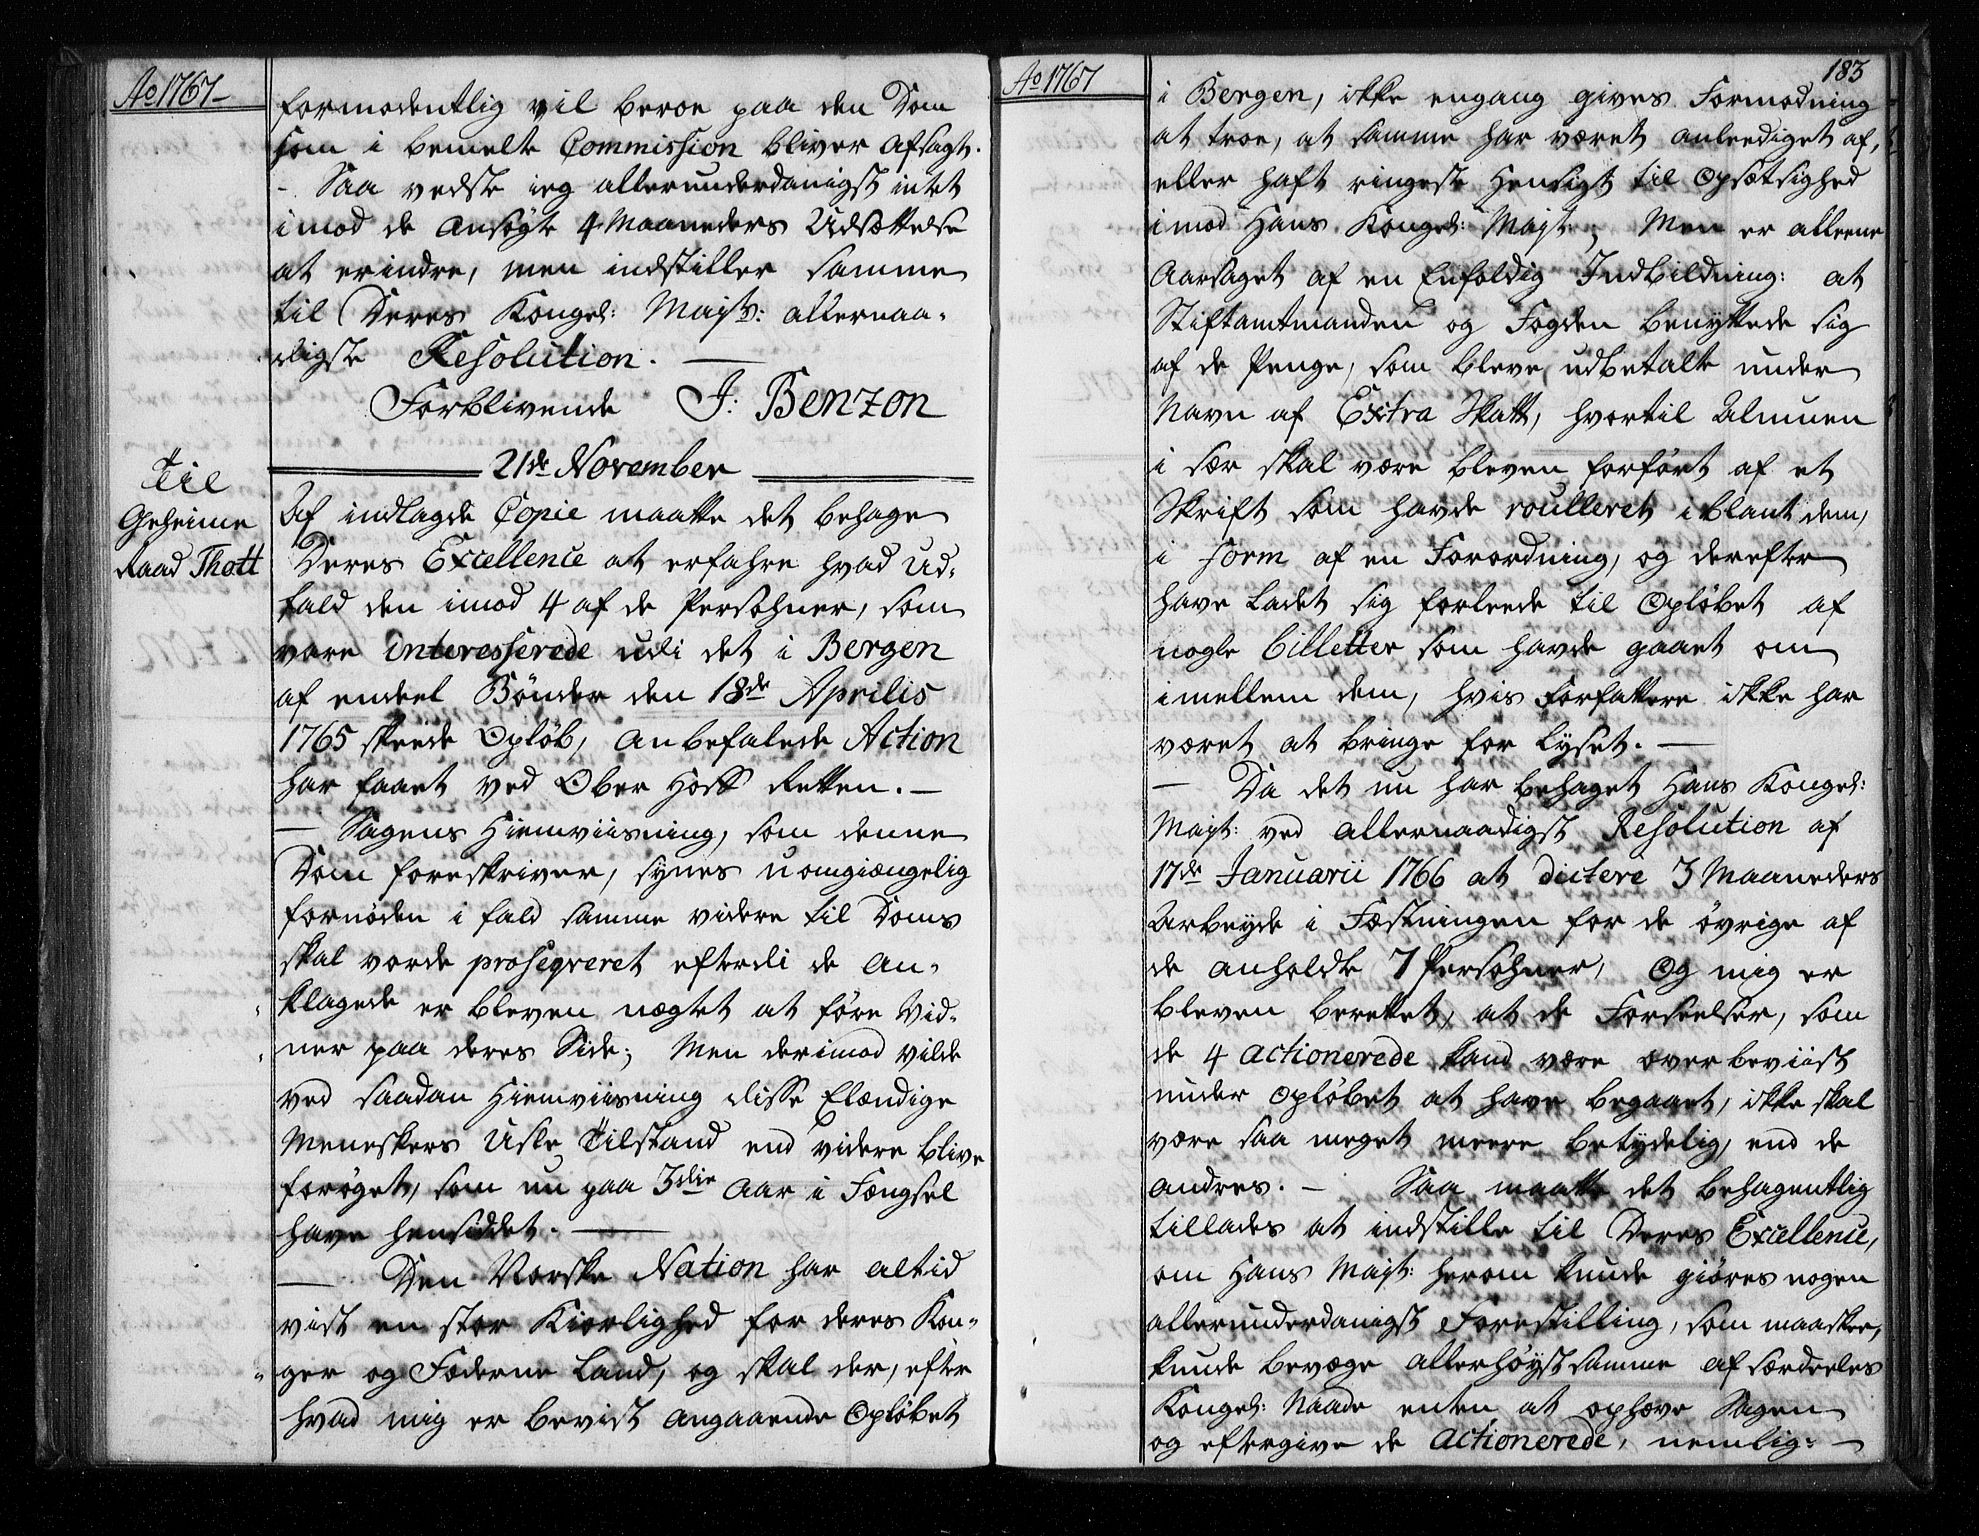 Ao 1767-
formodentlig vil beroe paa den Dom
som i bemelte Commission bliver afsagt.
- Saa vedste ieg allerunderdanigst intet
imod de ansøgte 4 Maaneders Udsættelse
at erindre, men indstiller samme
til Deres Kongel: Majts: allernaa-
digste Resolution. —
Forblivende J: Benzon
21de November
Til
Geheime
Raad Thott
Af indlagde Copie maatte det behage
Deres Excellence at erfahre hvad Ud-
fald den imod 4 af de Persohner, som
vare interesserede udi det i Bergen
af endeel Bønder den 18de Aprilis
1765 skeede Opløb, anbefalede Action
har faaet ved Ober Hoff Retten. —
— Sagens Hiemviisning, som denne
Dom foreskriver, synes uomgiængelig
fornøden i fald samme videre til Doms
skal vorde proseqveret efterdi de an-
klagede er bleven nægtet at føre Vid-
ner paa deres Side; Men derimod vilde
ved saadan Hiemviisning disse Elændige
Meneskers Usle Tilstand end videre blive
forøget, som nu paa 3die Aar i Fængsel
have hensiddet. —
— Den Norske Nation har altid
vist en stor Kiærlighed for deres Kon-
ger og Fæderne Land, og skal der, efter
hvad mig er bevist angaaende Opløbet
Ao 1767
183
i Bergen, ikke engang gives Formodning
at troe, at samme har været anleediget af,
eller haft ringeste Hensigt til Opsætsighed
imod Hans Kongel: Majt:, Men er alleene
Aarsaget af en Enfoldig Indbildning: at
Stiftamtmanden og Fogden benyttede sig
af de Penge, som bleve udbetalte under
Navn af Extra Skatt, hvortil Almuen
i sær skal være bleven forført af et
Skrift som havde roulleret iblant dem,
i Form af en Forordning, og derefter
have ladet sig forleede til Opløbet af
nogle billetter som havde gaaet om
imellem dem, hvis Forfattere ikke har
været at bringe for Lyset. —
— Da det nu har behaget Hans Kongel:
Majt: ved allernaadigst Resolution af
17de Januarii 1766 at dictere 3 Maaneders
Arbeyde i Fæstningen for de øvrige af
de anholdte 7 Persohner, Og mig er
bleven berettet, at de Forseelser, som
de 4 actionerede kand være overbeviist
under Opløbet at have begaaet, ikke skal
være saa meget meere betydelig, end de
andres. — Saa maatte det behagentlig
tillades at indstille til Deres Excellence,
om Hans Majt: herom kunde giøres nogen
allerunderdanigst Forestilling, som maaskee,
kunde bevæge allerhøystsamme af særdeeles
Kongel: Naade enten at ophæve Sagen
og eftergive de actionerede, nemlig: —